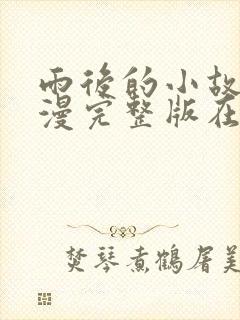 雨後的小故
漫完整版在
焚琴煮鶴屠美